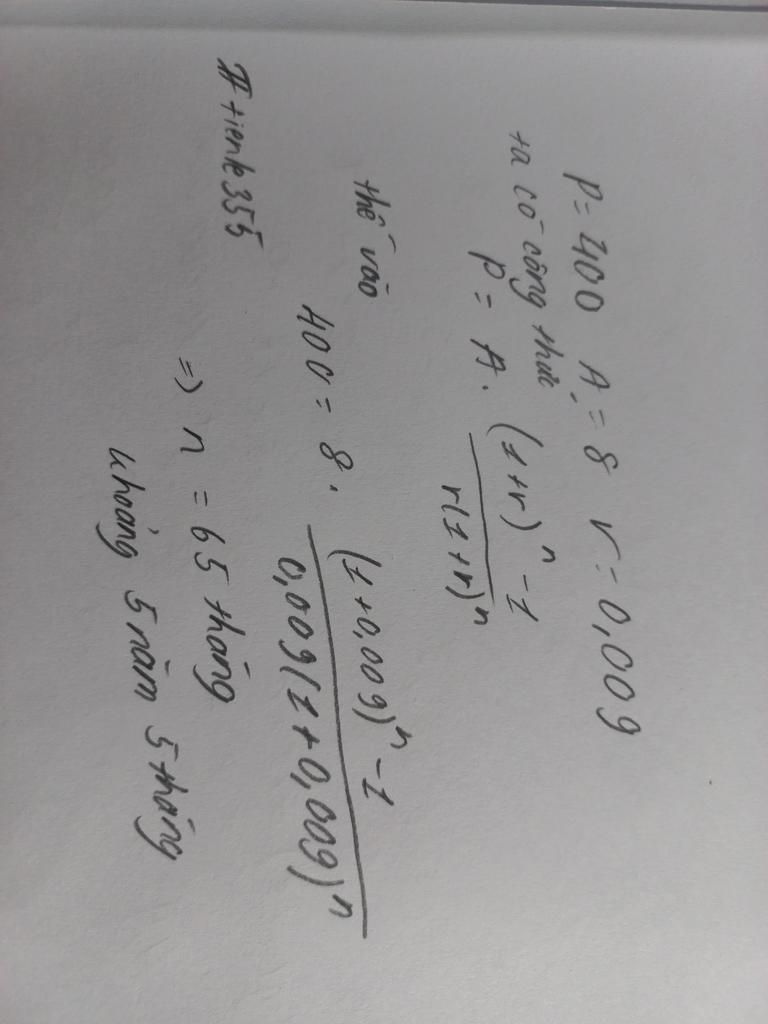 P = 400 A = 8 r = 0,009
ta có công thức
P = A. \frac{(1+r)^n - 1}{r(1+r)^n}
thế vào
400 = 8. \frac{(1+0,009)^n - 1}{0,009(1+0,009)^n}
#tienle355
=> n = 65 tháng
khoảng 5 năm 5 tháng